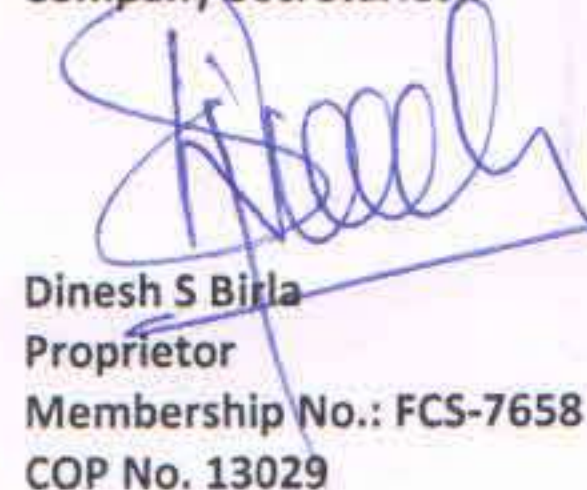 Company Secretaries
Dinesh S Birla
Proprietor
Membership No.: FCS-7658
COP No. 13029